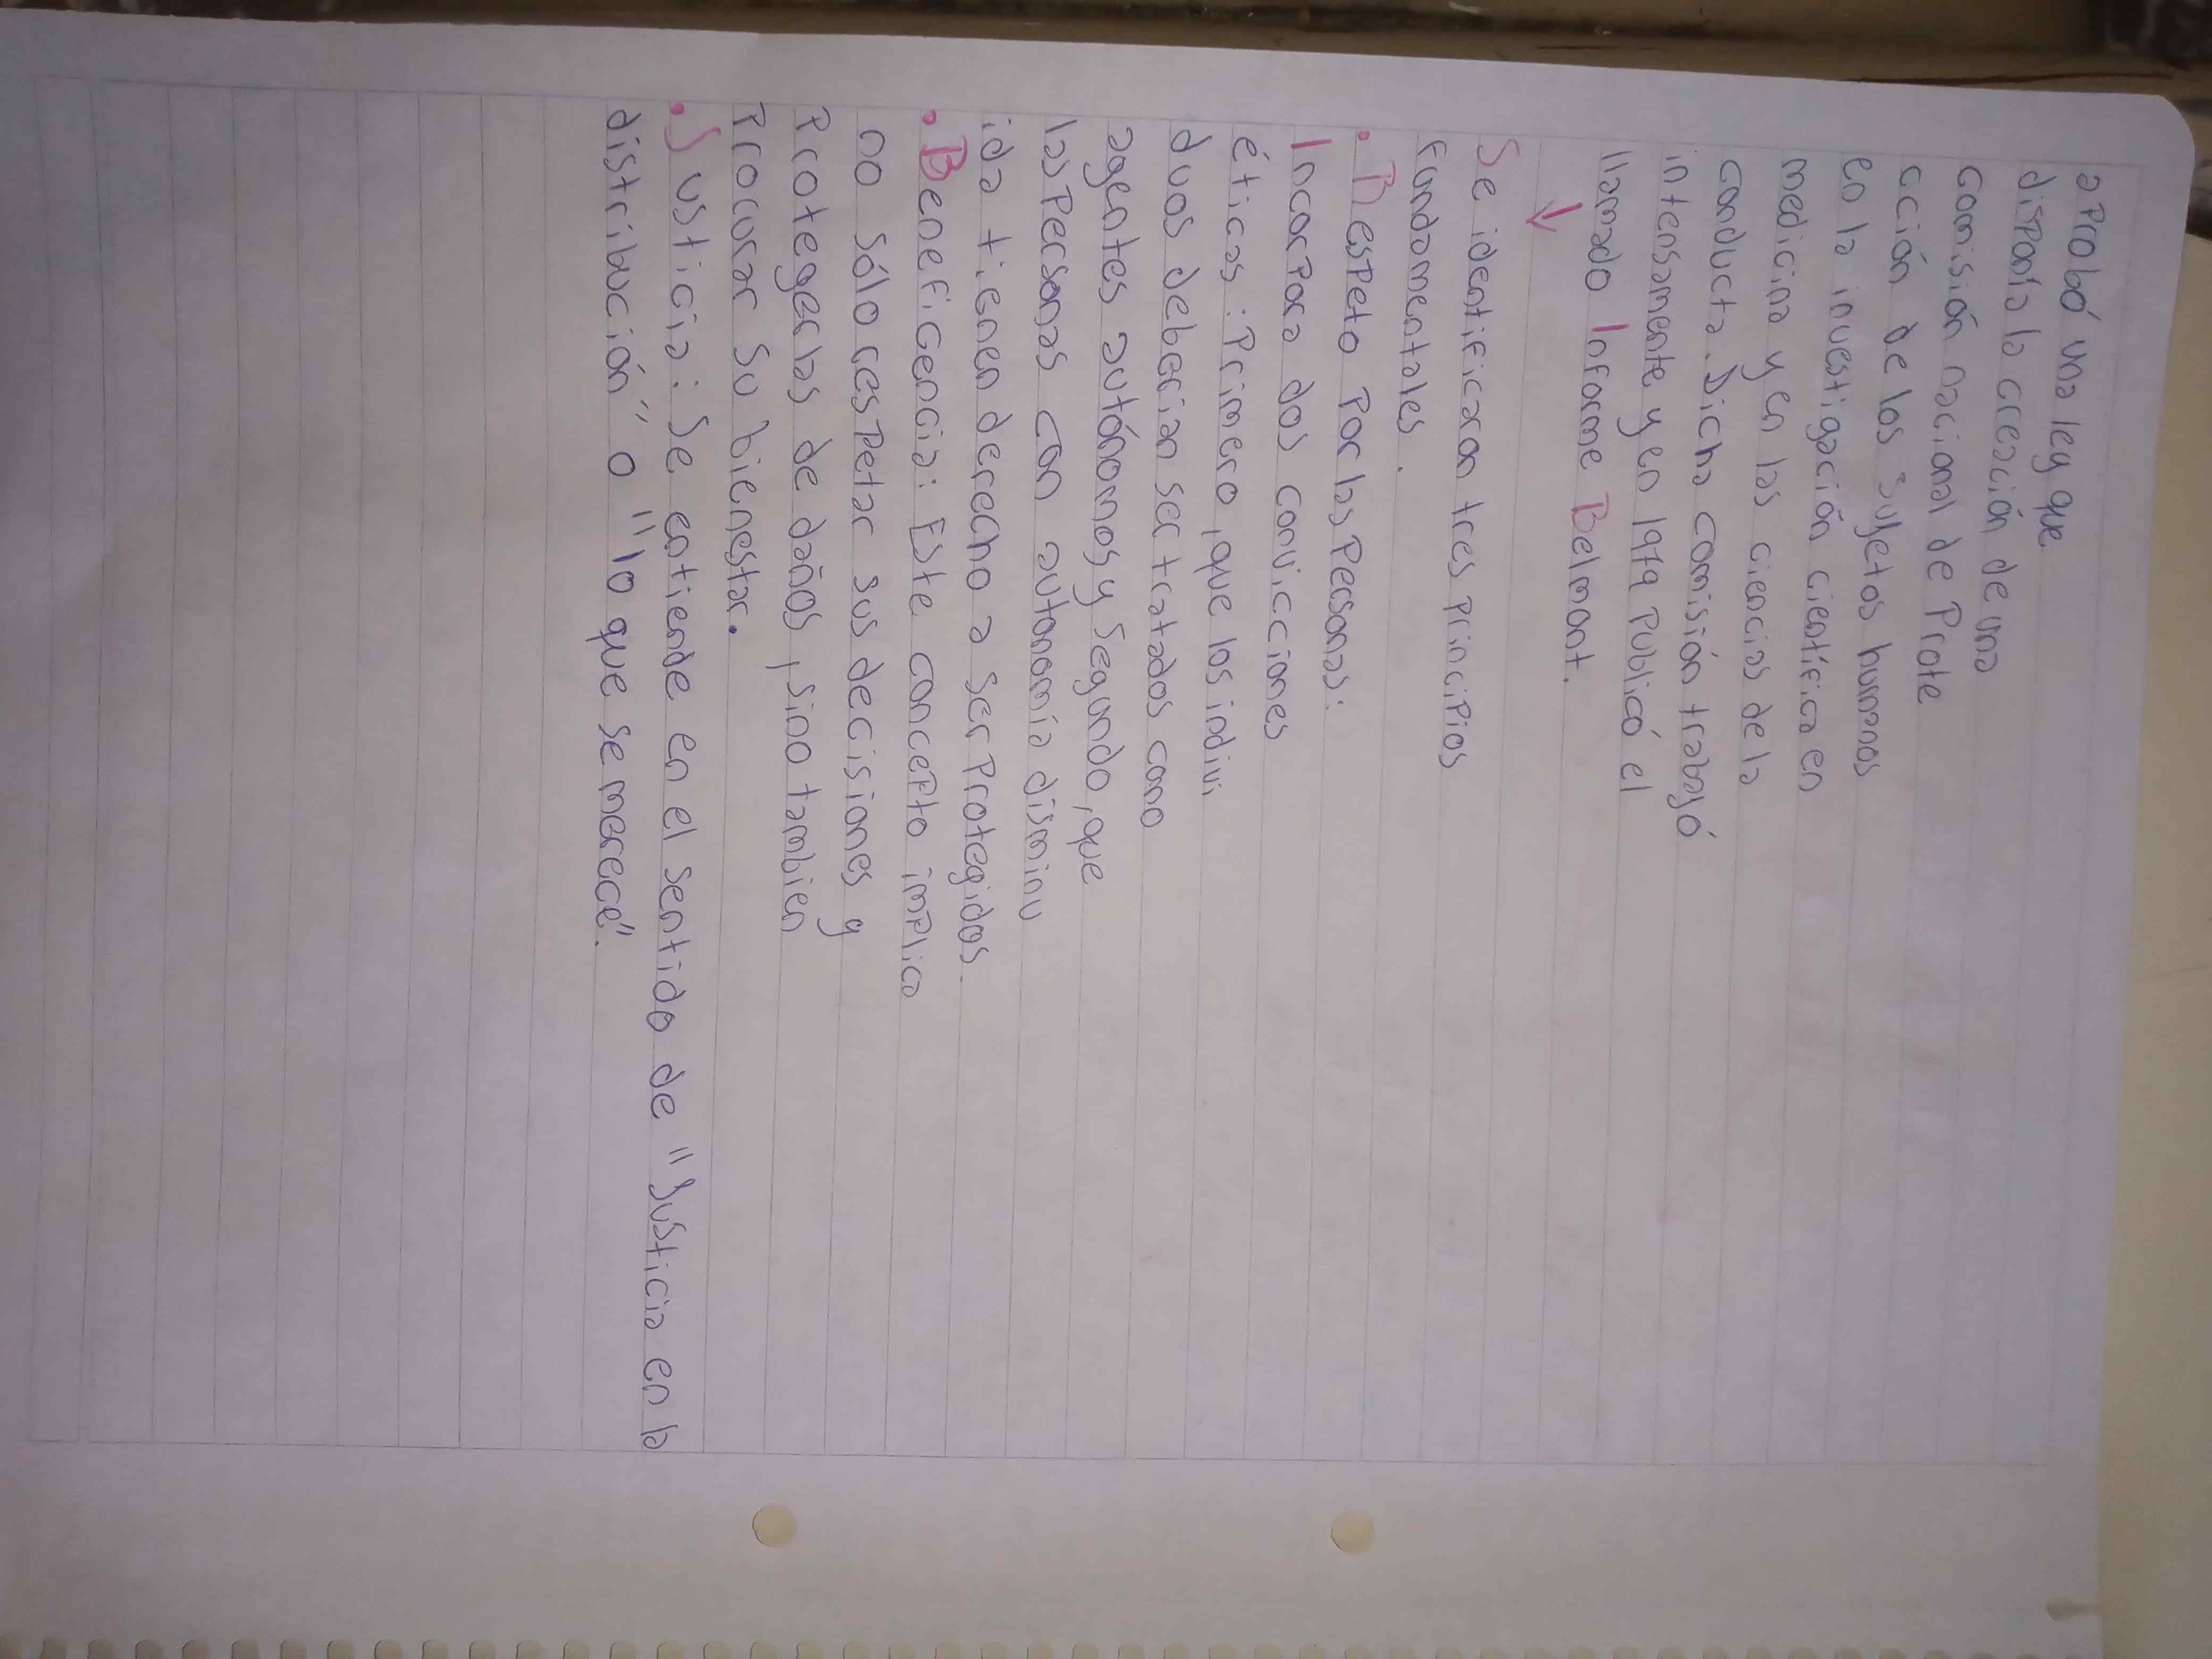 aprobó una ley que
disponía la creación de una
comisión nacional de Prote
cción de los sujetos humanos
en la investigación científica en
medicina y en las ciencias de la
conducta. Dicha comisión trabajó
intensamente y en 1979 Publicó el
llamado Informe Belmont.
↓
Se identificaron tres principios
fundamentales.
• Respeto Por las Personas:
Incorpora dos convicciones
éticas: Primero, que los indivi
duos deberian ser tratados como
agentes autónomos y Segundo, que
las Personas con autonomía disminu
ida tienen derecho a ser Protegidos.
• Beneficencia: Este concepto implica
no sólo respetar sus decisiones y
Protegerlas de daños, sino tambien
Procurar su bienestar.
• Justicia: Se entiende en el sentido de "Justicia en la
distribución" o "lo que se merece".